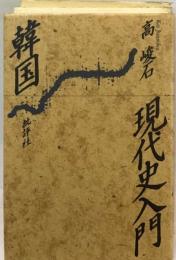 韓国
現代史入門
高峻石
批評社